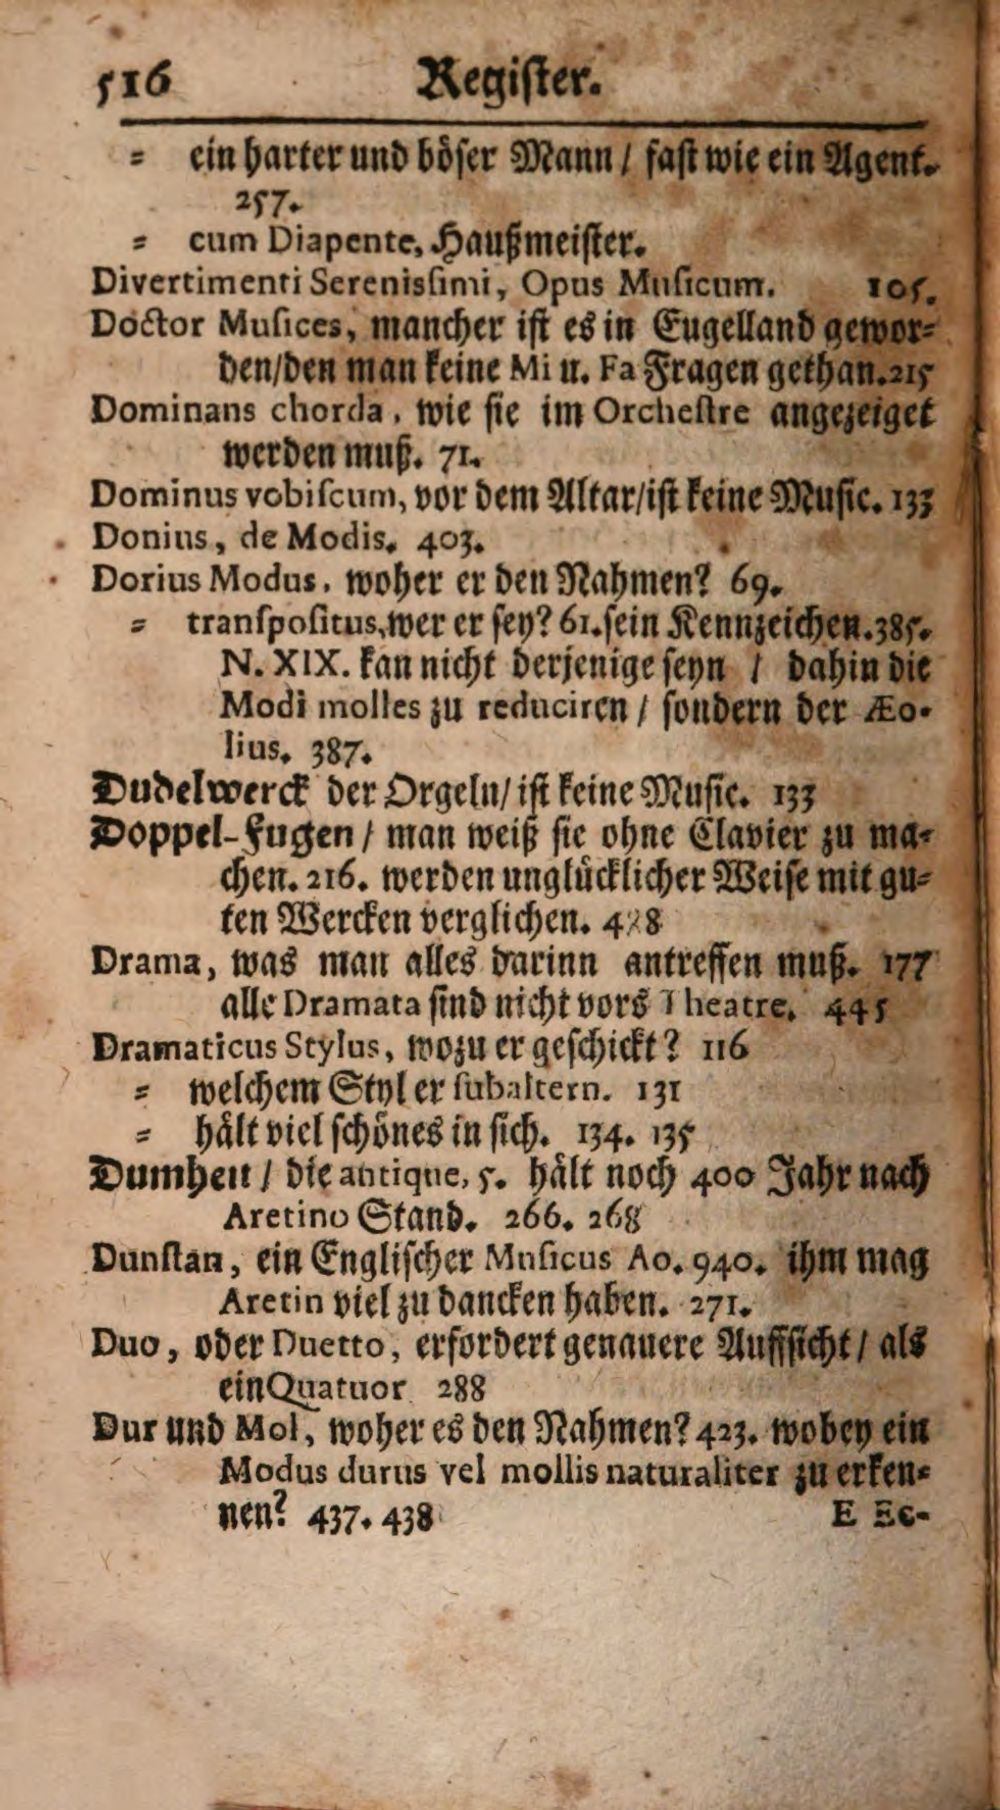 516 Register.
= ein harter und böser Mann / fast wie ein Agent.
257.
= cum Diapente, Haußmeister.
Divertimenti Serenissimi, Opus Musicum. 105.
Doctor Musices, mancher ist es in Eugelland gewor=
den/den man keine Mi u. Fa Fragen gethan.215
Dominans chorda, wie sie im Orchestre angezeiget
werden muß. 71.
Dominus vobiscum, vor dem Altar/ist keine Music. 133
Donius, de Modis. 403.
Dorius Modus, woher er den Nahmen? 69.
= transpositus,wer er sey? 61.sein Kennzeichen.385.
N. XIX. kan nicht derjenige seyn / dahin die
Modi molles zu reduciren / sondern der Æo-
lius. 387.
Dudelwerck der Orgeln/ ist keine Music. 133
Doppel-Fugen / man weiß sie ohne Clavier zu ma-
chen. 216. werden unglücklicher Weise mit gu=
ten Wercken verglichen.
Drama, was man alles darinn antreffen muß. 177
alle Dramata sind nicht vors Theatre. 445
Dramaticus Stylus, wozu er geschickt? 116
= welchem Styl er subaltern. 131
= hält viel schönes in sich. 134. 135
Dumheit / die antique, 5. hält noch 400 Jahr nach
Aretino Stand. 266. 268
Dunstan, ein Englischer Musicus Ao. 940. ihm mag
Aretin viel zu dancken haben. 271.
Duo, oder Duetto, erfordert genauere Auffsicht / als
ein Quatuor 288
Dur und Mol, woher es den Nahmen? 423. wobey ein
Modus durus vel mollis naturaliter zu erken=
nen? 437. 438 E Ec-